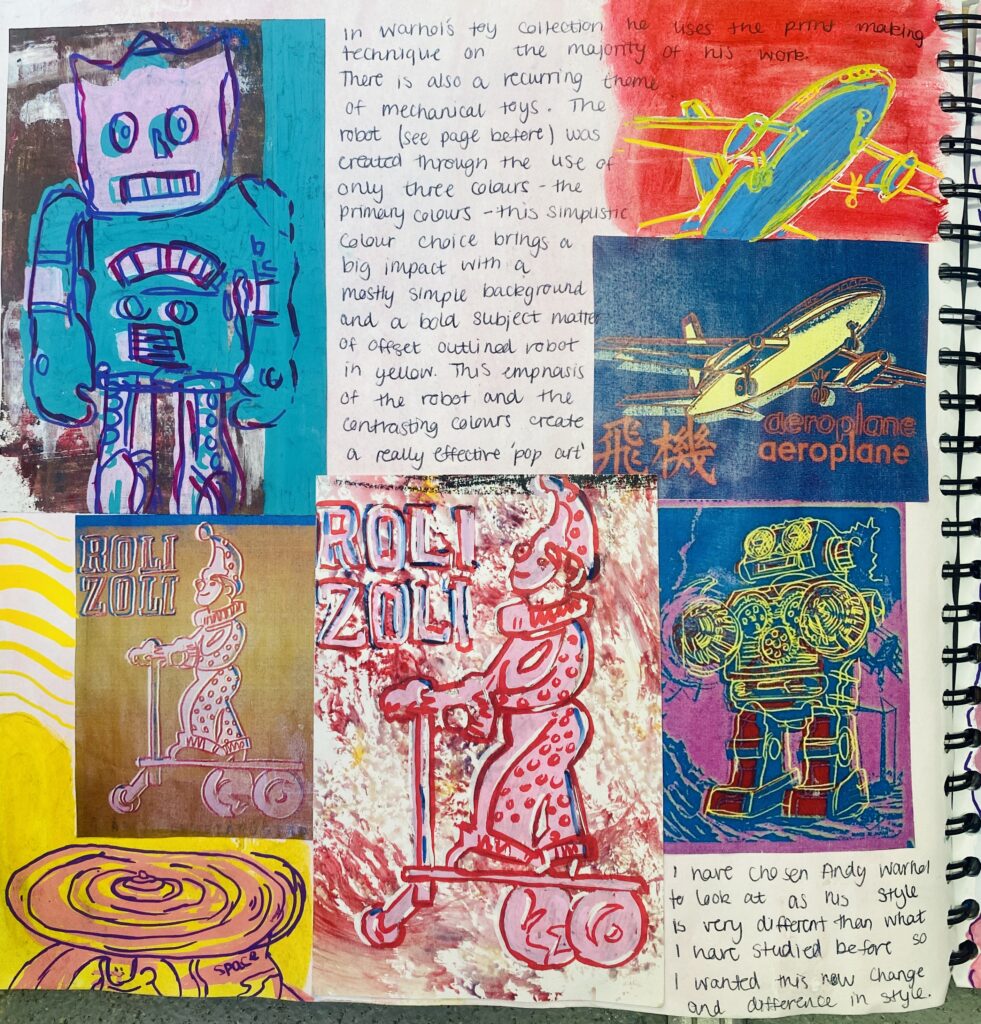 In Warhol's toy collection he uses the print making
technique on the majority of his work.
There is also a recurring theme
of mechanical toys. The
robot (see page before) was
created through the use of
only three colours - the
primary colours - this simplistic
colour choice brings a
big impact with a
mostly simple background
and a bold subject matter
of offset outlined robot
in yellow. This emphasis
of the robot and the
contrasting colours create
a really effective 'pop art'
飛機
aeroplane
aeroplane
ROLI
ZOLI
ROLI
ZOLI
space
I have chosen Andy Warhol
to look at as his style
is very different than what
I have studied before so
I wanted this new change
and difference in style.